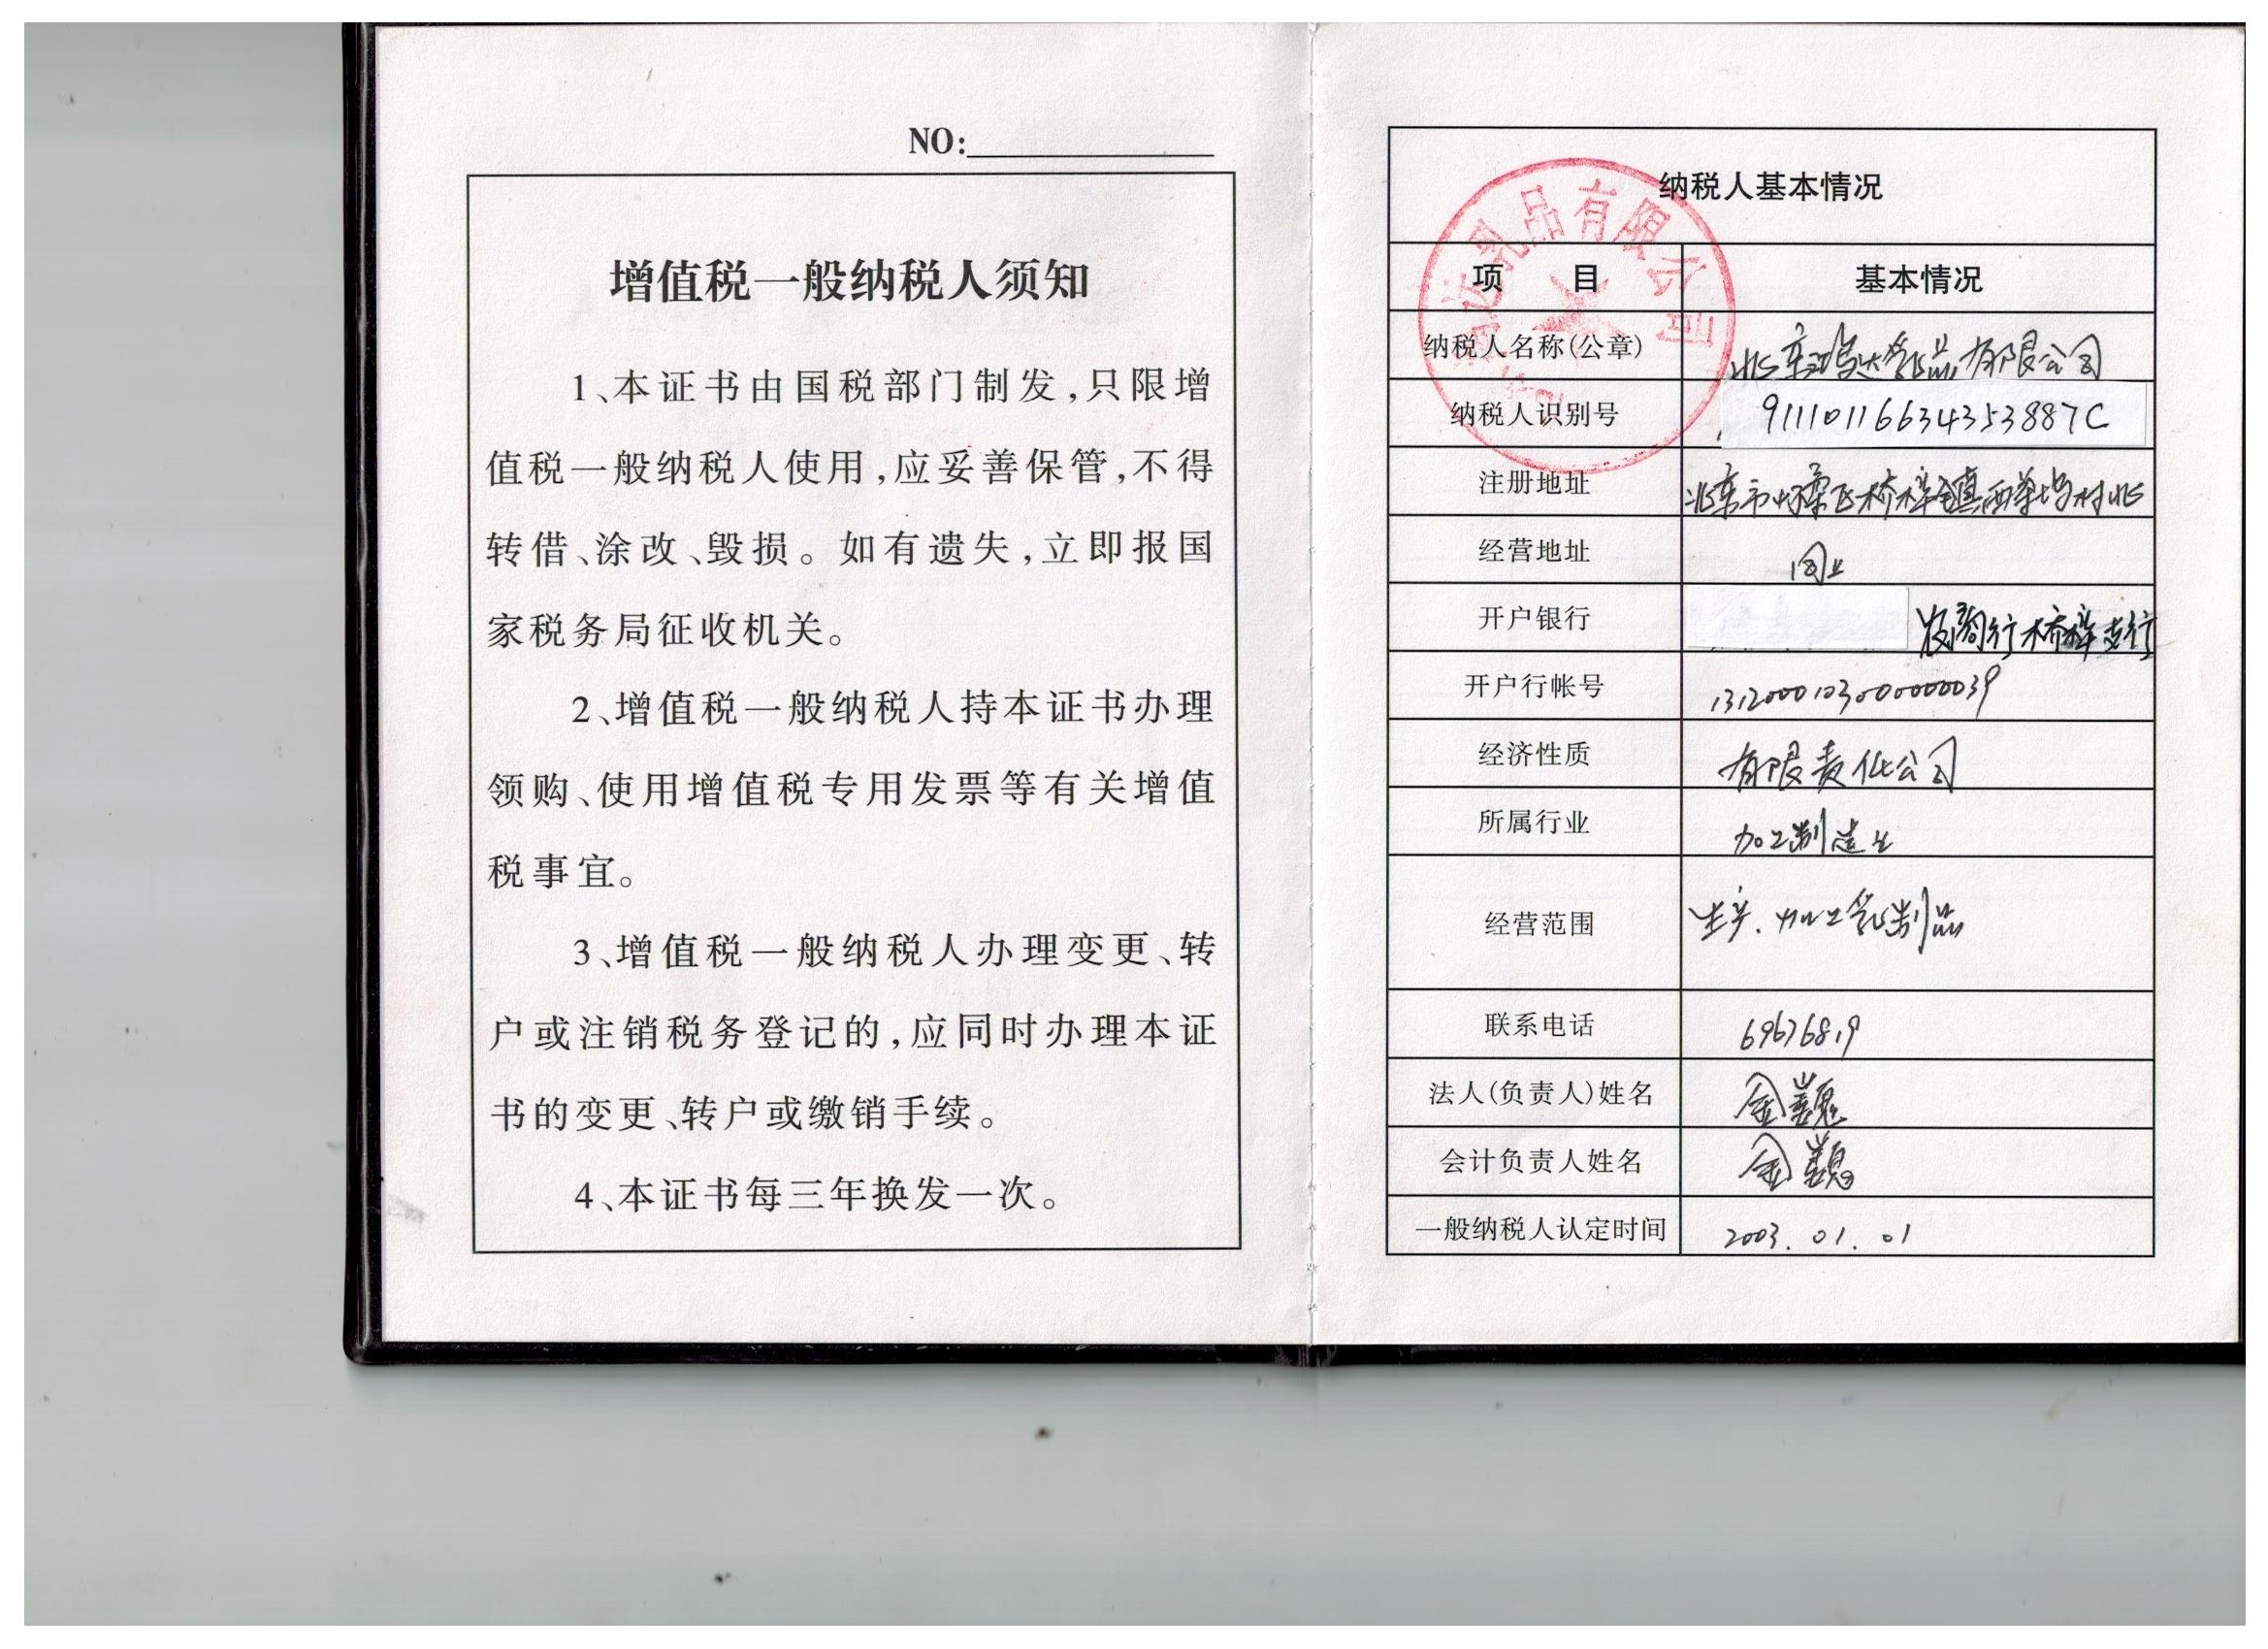 NO:
增值税一般纳税人须知
1、本证书由国税部门制发,只限增
值税一般纳税人使用,应妥善保管,不得
转借、涂改、毁损。如有遗失,立即报国
家税务局征收机关。
2、增值税一般纳税人持本证书办理
领购、使用增值税专用发票等有关增值
税事宜。
3、增值税一般纳税人办理变更、转
户或注销税务登记的,应同时办理本证
书的变更、转户或缴销手续。
4、本证书每三年换发一次。
纳税人基本情况
项 目 基本情况
纳税人名称(公章) 北京鸿达乳品有限公司
纳税人识别号 91110116634353887C
注册地址 北京市怀柔区桥梓镇西茶坞村北
经营地址 同上
开户银行 农商行桥梓支行
开户行帐号 1312000103000000039
经济性质 有限责任公司
所属行业 加工制造业
经营范围 生产、加工乳制品
联系电话 69676819
法人(负责人)姓名 金巍
会计负责人姓名 金巍
一般纳税人认定时间 2003.01.01
达乳品有限公司